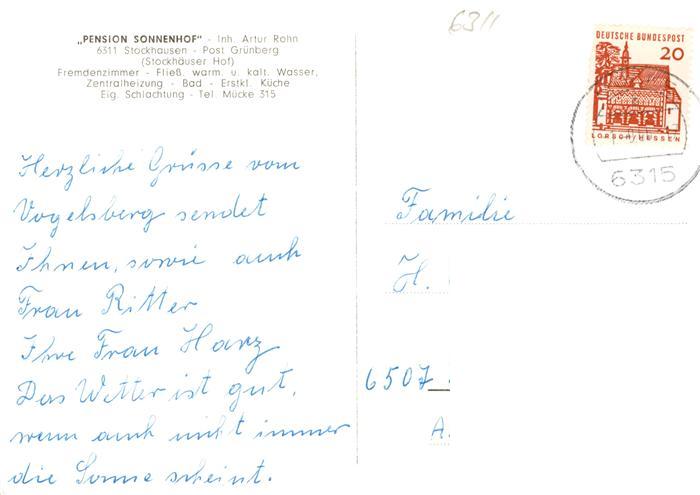 6311
„PENSION SONNENHOF" - Inh. Artur Rohn
6311 Stockhausen - Post Grünberg
(Stockhäuser Hof)
Fremdenzimmer - Fließ. warm. u. kalt. Wasser,
Zentralheizung - Bad - Erstkl. Küche
Eig. Schlachtung - Tel. Mücke 315
DEUTSCHE BUNDESPOST
20
LORSCH/HESSEN
6315
Herzliche Grüsse vom
Vogelsberg sendet
Ihnen, sowie auch
Frau Ritter
Ihre Frau Harz
Das Wetter ist gut,
wenn auch nicht immer
die Sonne scheint.
Familie
H.
6507
A.